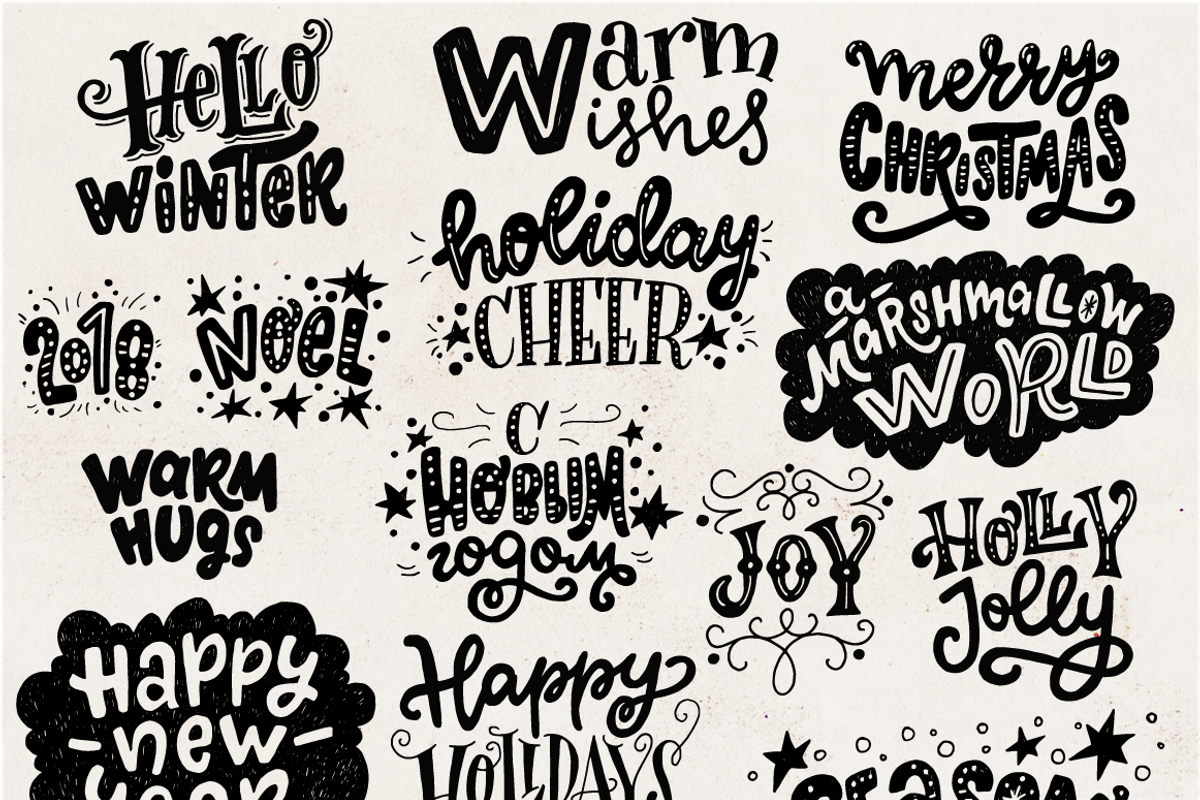 Hello
WiNTeR
Warm
ishes
merry
CHRiSTMAS
holiday
CHEER
2018
NoeL
a
MaRSHmaLLoW
WoRLD
С
НОВЫМ
годом
WaRM
HUgs
JOY
HoLLY
Jolly
Happy
-new-
year
Happy
HoLiDAYS
SeaSon